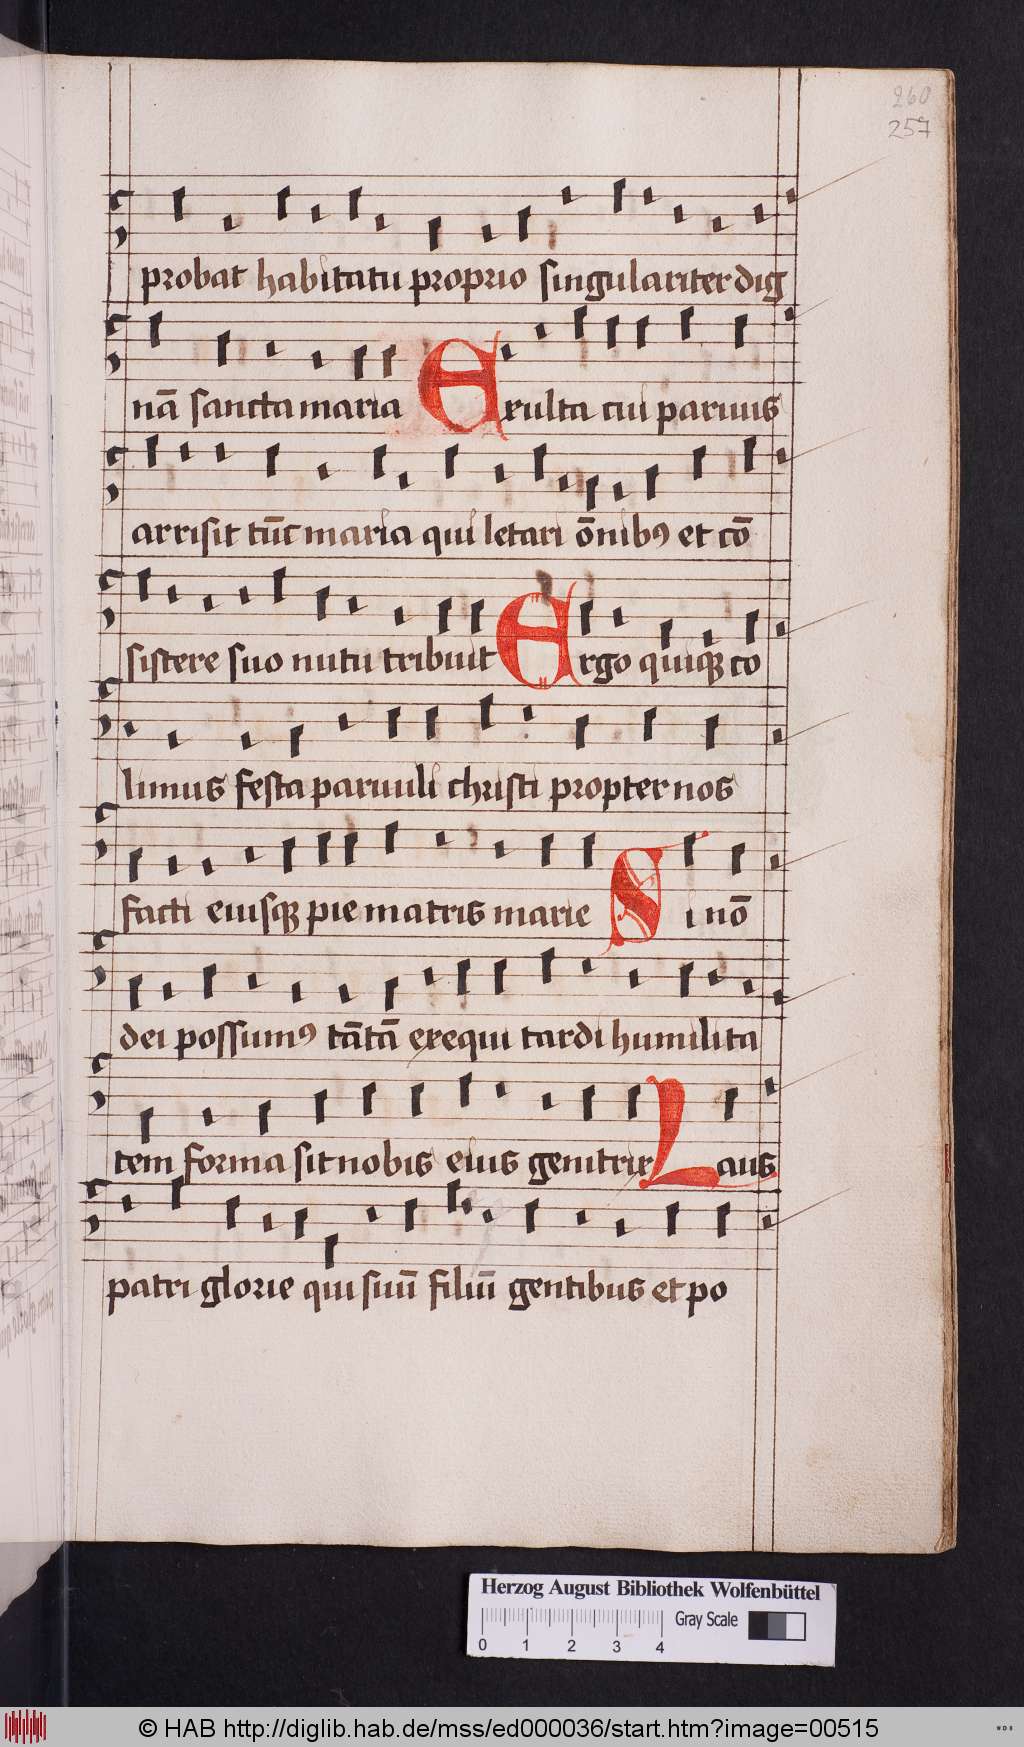 260
257
probat habitatu proprio singulariter dig
nā sancta maria Exulta cui paruus
arrisit tūc maria qui letari ōnibꝰ et cō
sistere suo nutu tribuit Ergo quiqꝫ co
limus festa paruuli christi propter nos
facti eiusqꝫ pie matris marie Si nō
dei possumꝰ tātā exequi tardi humilita
tem forma sit nobis eius genitrix Laus
patri glorie qui suū filiū gentibus et po
Herzog August Bibliothek Wolfenbüttel
Gray Scale
0 1 2 3 4
© HAB http://diglib.hab.de/mss/ed000036/start.htm?image=00515